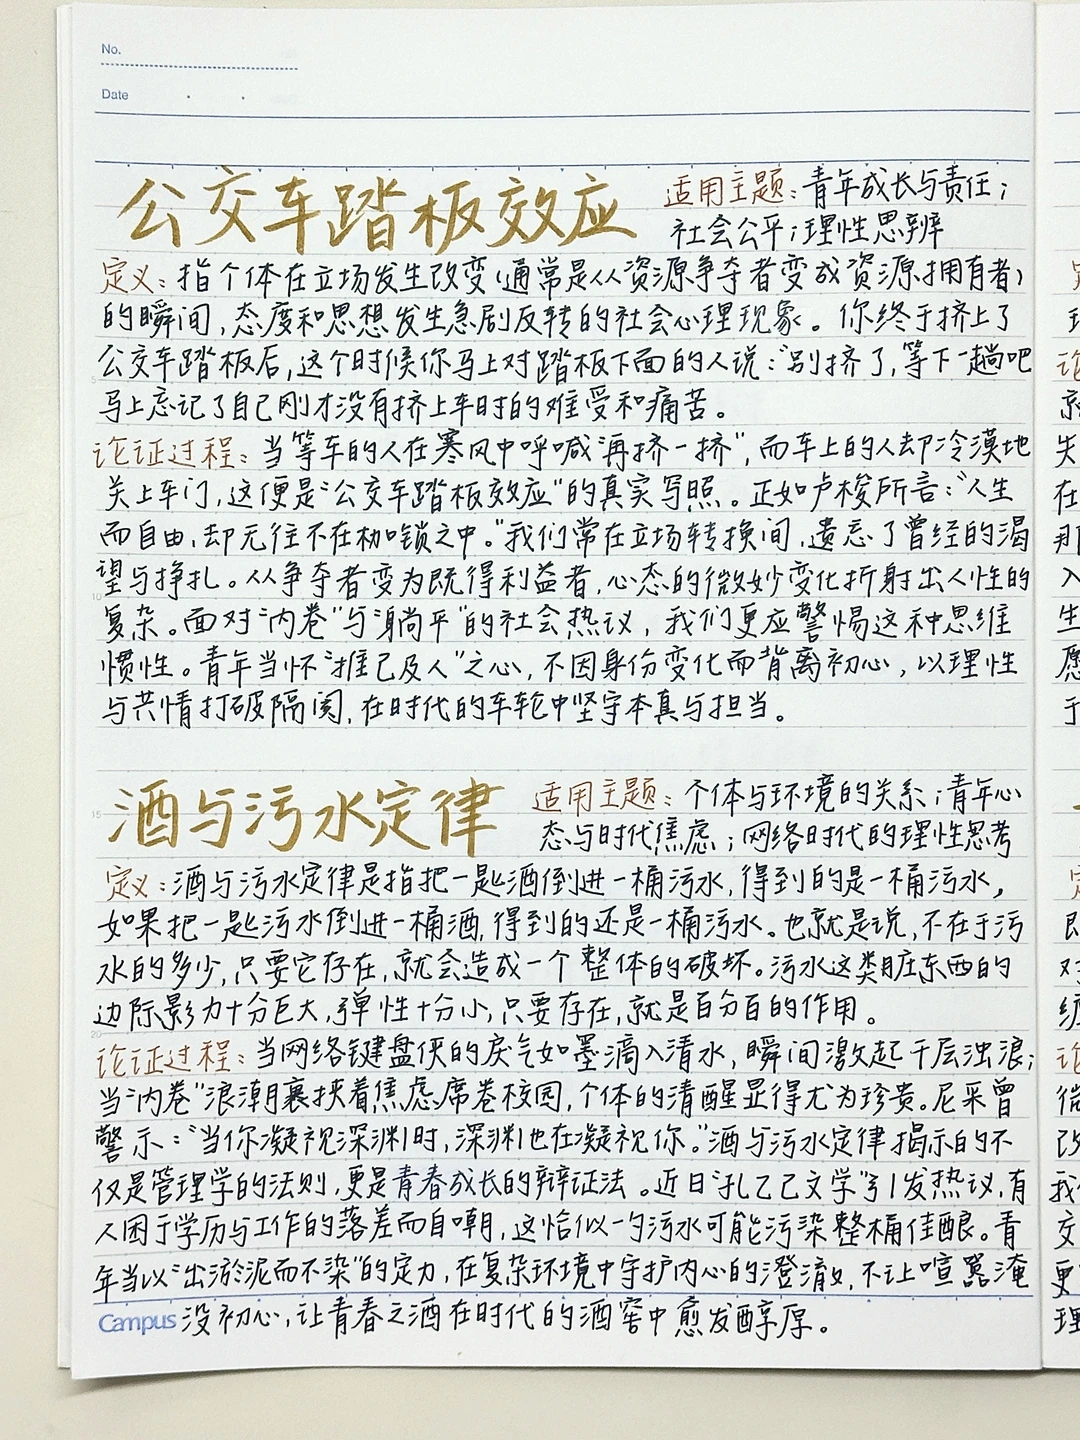 No.
Date
公交车踏板效应 适用主题：青年成长与责任；
社会公平；理性思辨
定义：指个体在立场发生改变（通常是从资源争夺者变成资源拥有者）
的瞬间，态度和思想发生急剧反转的社会心理现象。你终于挤上了
公交车踏板后，这个时候你马上对踏板下面的人说：“别挤了，等下一趟吧
马上忘记了自己刚才没有挤上车时的难受和痛苦。
论证过程：当等车的人在寒风中呼喊“再挤一挤”，而车上的人却冷漠地
关上车门，这便是“公交车踏板效应”的真实写照。正如卢梭所言：“人生
而自由，却无往不在枷锁之中。”我们常在立场转换间，遗忘了曾经的渴
望与挣扎。从争夺者变为既得利益者，心态的微妙变化折射出人性的
复杂。面对“内卷”与“躺平”的社会热议，我们更应警惕这种思维
惯性。青年当怀“推己及人”之心，不因身份变化而背离初心，以理性
与共情打破隔阂，在时代的车轮中坚守本真与担当。
酒与污水定律 适用主题：个体与环境的关系；青年心
态与时代焦虑；网络时代的理性思考
定义：酒与污水定律是指把一匙酒倒进一桶污水，得到的是一桶污水，
如果把一匙污水倒进一桶酒，得到的还是一桶污水。也就是说，不在于污
水的多少，只要它存在，就会造成一个整体的破坏。污水这类脏东西的
边际影力十分巨大，弹性十分小，只要存在，就是百分百的作用。
论证过程：当网络键盘侠的戾气如墨滴入清水，瞬间激起千层浊浪；
当“内卷”浪潮裹挟着焦虑席卷校园，个体的清醒显得尤为珍贵。尼采曾
警示：“当你凝视深渊时，深渊也在凝视你。”酒与污水定律揭示的不
仅是管理学的法则，更是青春成长的辩证法。近日“孔乙己文学”引发热议，有
人困于学历与工作的落差而自嘲，这恰似一勺污水可能污染整桶佳酿。青
年当以“出淤泥而不染”的定力，在复杂环境中守护内心的澄澈，不让喧嚣淹
Campus 没初心，让青春之酒在时代的酒窖中愈发醇厚。